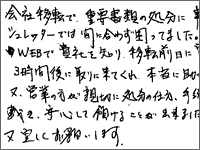 会社移転で、重要書類の処分に
シュレッターでは間に合わず困ってました。
WEBで貴社を知り、移転前日に
3時間後に取りに来てくれ、本当に助
又、営業の方が親切に処分の仕方、手続
安心して預けることが出来ました
又宜しくお願いします。